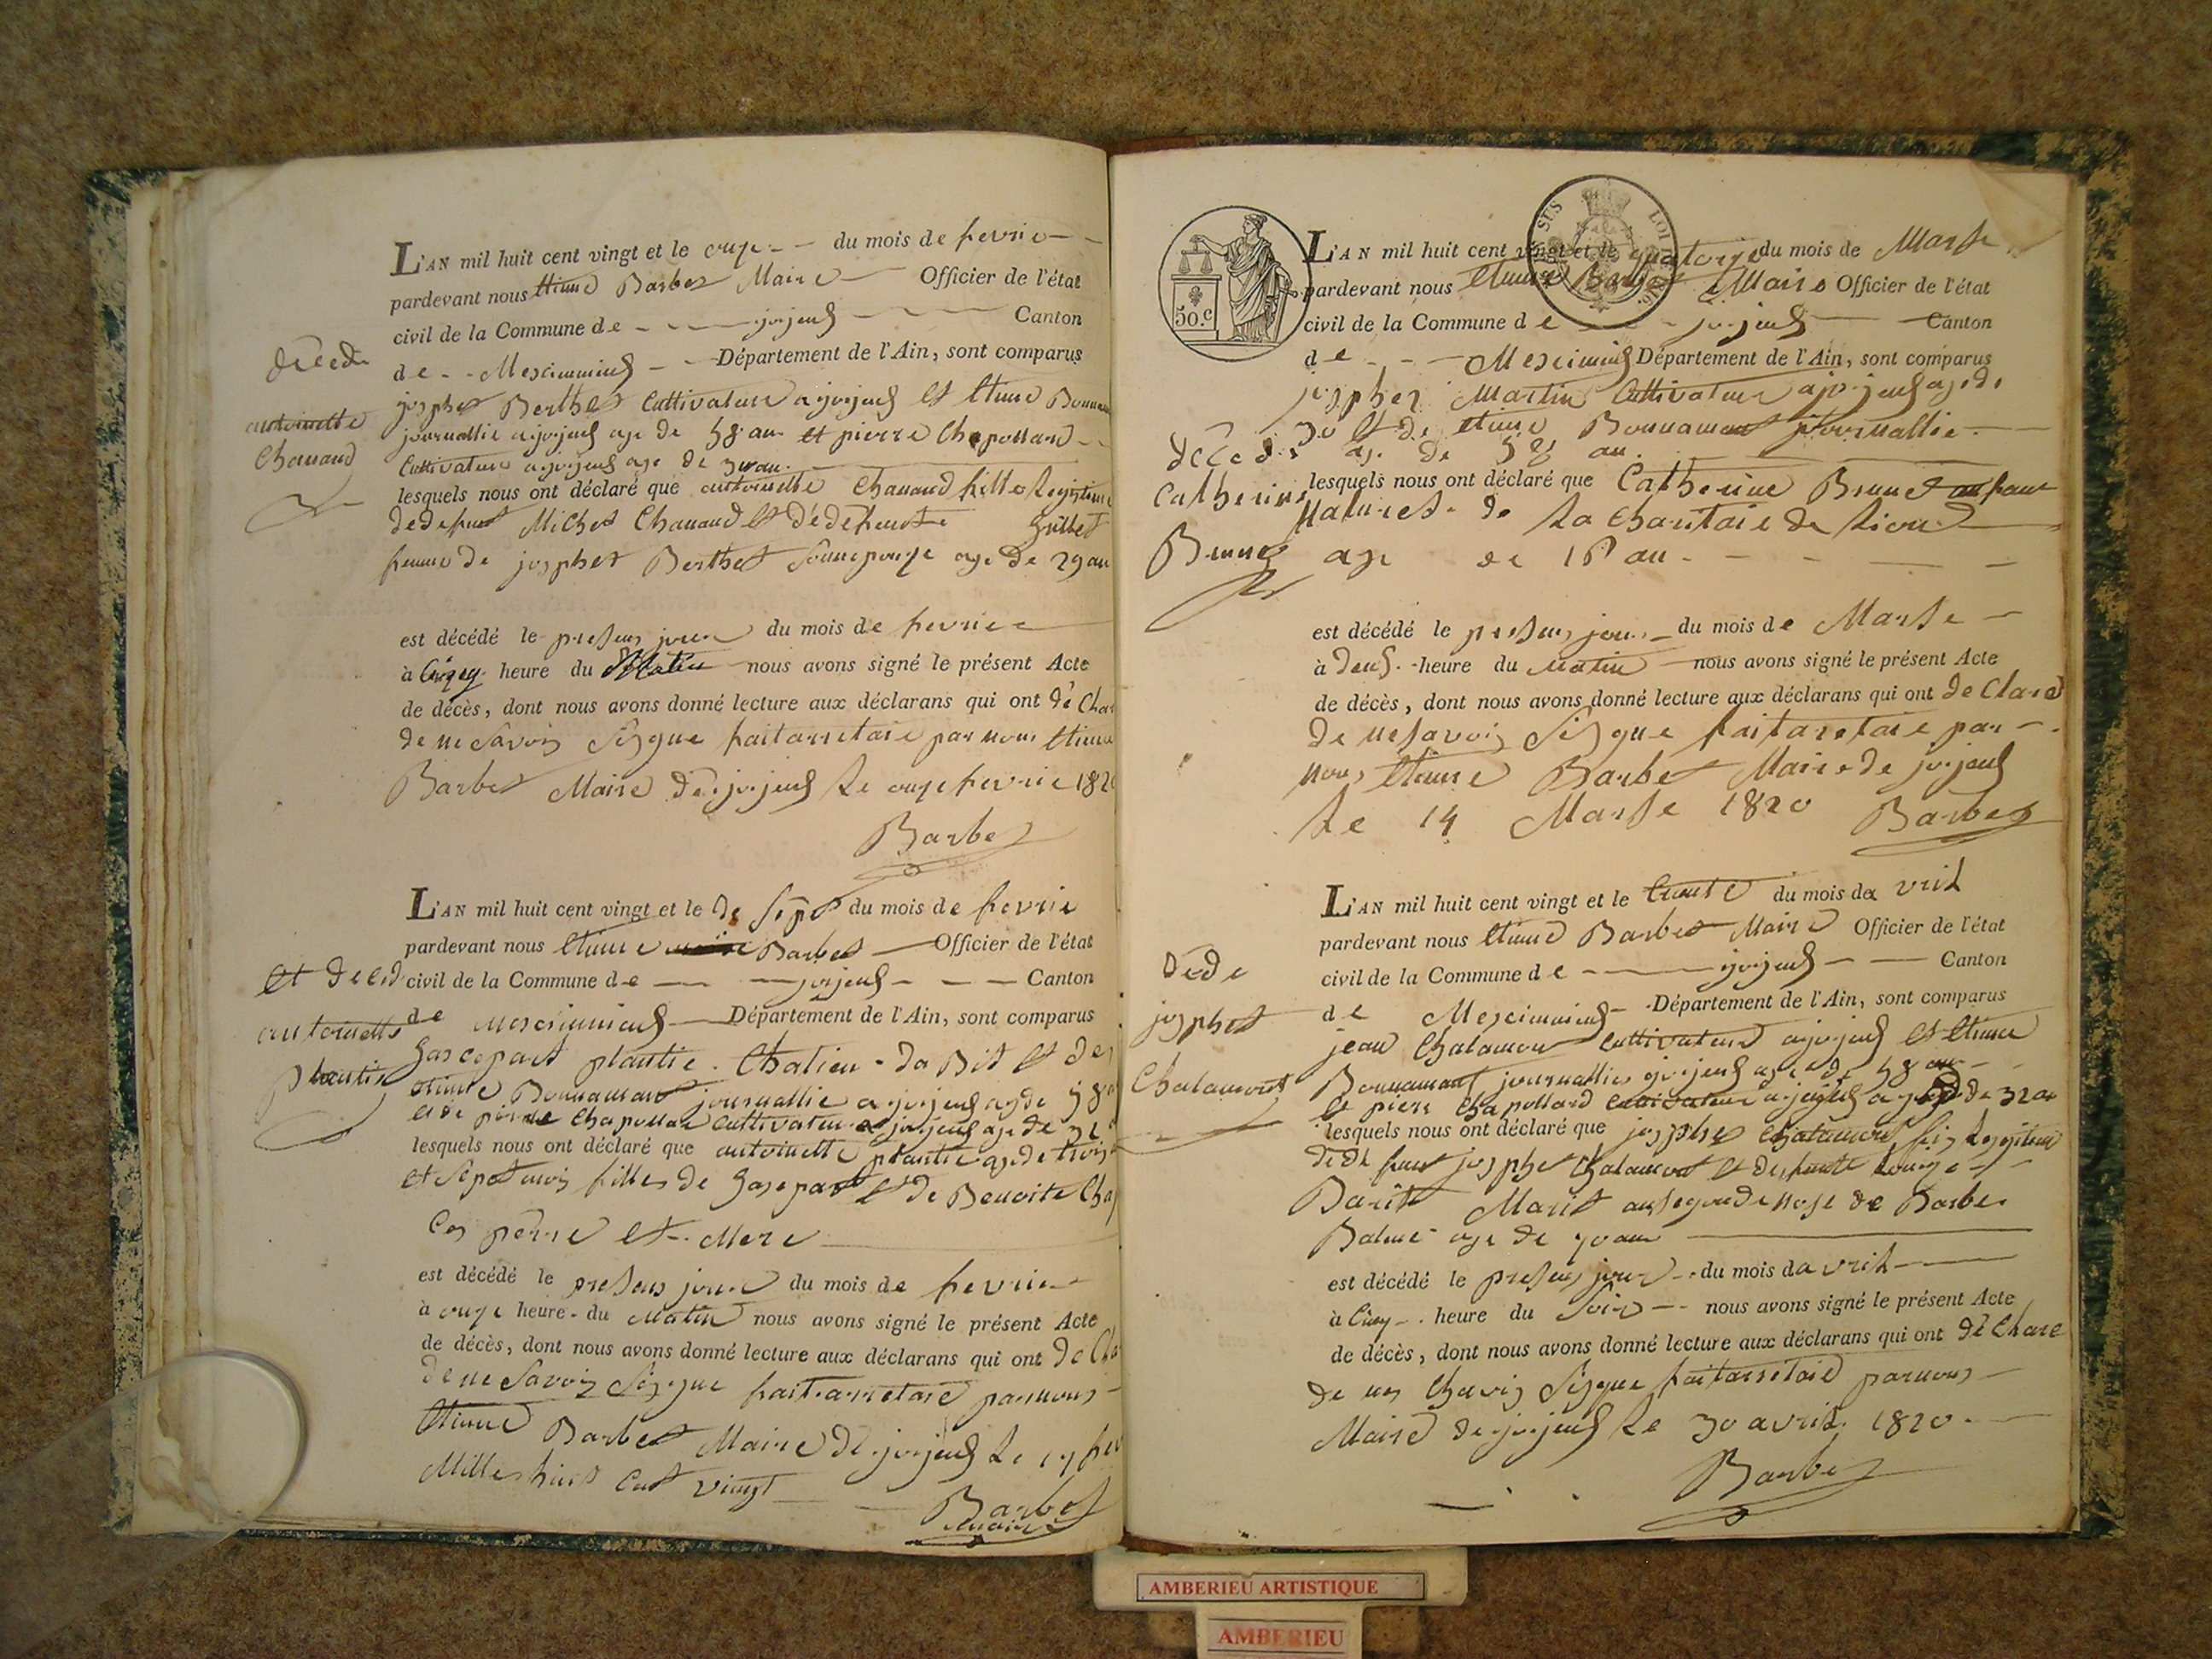 L'AN mil huit cent vingt et le onze du mois de fevrie
pardevant nous Etiene Barbet Maire Officier de l'état
civil de la Commune de joyeux Canton
de Meximieux Département de l'Ain, sont comparus
décédé
antoinette
Chanand
josphet Berthet Cultivature a joyeux et Etiene Bonnam
journallie a joyeux age de 58 an et pierre Chapolland
Cultivature a joyeux age de an
lesquels nous ont déclaré que antoinette Chanand fille legitime
de defunt Michet Chanand et de defunte Guillet
femme de josphet Berthet age de 29 an
est décédé le presens jour du mois de fevrie
à heure du Matin nous avons signé le présent Acte
de décès, dont nous avons donné lecture aux déclarans qui ont dé Clar
de ne Savoir Siggne fait arretaie par nous Etiene
Barbet Maire de joyeux Le onze fevrie 182
Barbet
L'AN mil huit cent vingt et le du mois de fevrie
pardevant nous Etiene Barbet Officier de l'état
civil de la Commune de joyeux Canton
de Meximieux Département de l'Ain, sont comparus
et décéd
antoinette
plantie
Gascpart plantie Chatieu da Bit et de
etiene Bonnamant journallie a joyeux agde 58
et de pierre Chapollan Cultivature a joyeux age de 32
lesquels nous ont déclaré que antoinette plantie agede trois
et Sept mois filles de Gaspart et de Benoite Cha
Ces perre et Mere
est décédé le presens jour du mois de fevrie
à onze heure du Matin nous avons signé le présent Acte
de décès, dont nous avons donné lecture aux déclarans qui ont dé Cla
de ne Savoir Siggne fait arretaie par nous
Etiene Barbet Maire de joyeux Le 17 fev
Mille huit Cent vingt
Barbet
maire
50.c
SUS LOI
L'AN mil huit cent vingt et le quatorze du mois de Marse
pardevant nous Etiene Barbet Maire Officier de l'état
civil de la Commune de joyeux Canton
de Meximieux Département de l'Ain, sont comparus
josphet Martin Cultivature a joyeux age de
30 et de etiene Bonnamant journallie
age de 58 an
décédé
Catherine
Brunet
lesquels nous ont déclaré que Catherine Brunet anfant
Naturet de La Charitaie de Lion
age de 18 an
est décédé le presens jour du mois de Marse
à deux heure du Matin nous avons signé le présent Acte
de décès, dont nous avons donné lecture aux déclarans qui ont de Clare
de ne Savoir Siggne fait aretaie par
nous Etiene Barbet Maire de joyeux
Le 14 Marse 1820 Barbet
L'AN mil huit cent vingt et le trente du mois da vril
pardevant nous Etiene Barbet Maire Officier de l'état
civil de la Commune de joyeux Canton
de Meximieux Département de l'Ain, sont comparus
dédé
josphet
Chalamont
jean Chalamon Cultivature a joyeux et Etiene
Bonnamant journallie a joyeux age de 58 an
et pierre Chapolland Cultivature a joyeux age de 32 an
lesquels nous ont déclaré que josphet Chalamont fis Legitime
de dé funt josphet Chalamont et defunte Louise
Barit Marit ansegonde nose de Barbe
Balme age de 70 an
est décédé le presens jour du mois da vril
à Cinq heure du Soir nous avons signé le présent Acte
de décès, dont nous avons donné lecture aux déclarans qui ont dé Clare
de nes Chavoir Sigque fait arretaie par nous
Maire de joyeux Le 30 avril 1820
Barbet
AMBERIEU ARTISTIQUE
AMBERIEU